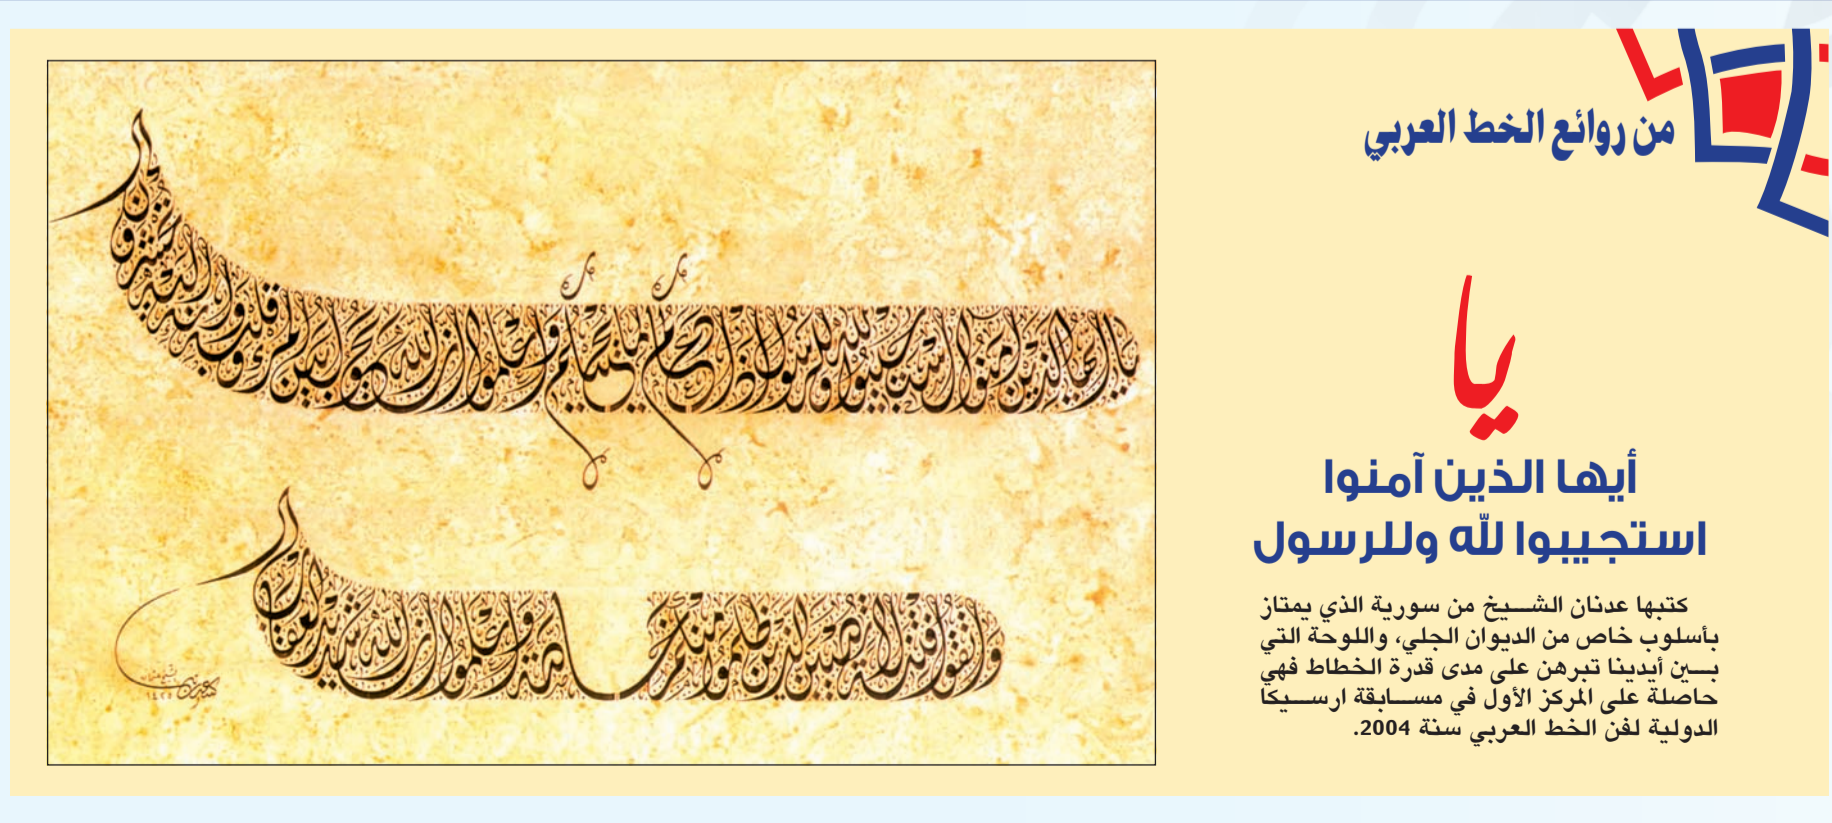 من روائع الخط العربي
يا
أيها الذين آمنوا
استجيبوا لله وللرسول
كتبها عدنان الشيخ من سورية الذي يمتاز
بأسلوب خاص من الديوان الجلي، واللوحة التي
بين أيدينا تبرهن على مدى قدرة الخطاط فهي
حاصلة على المركز الأول في مسابقة ارسيكا
الدولية لفن الخط العربي سنة 2004.
يا أيها الذين آمنوا استجيبوا لله وللرسول إذا دعاكم لما يحييكم واعلموا أن الله يحول بين المرء وقلبه وأنه إليه تحشرون
واتقوا فتنة لا تصيبن الذين ظلموا منكم خاصة واعلموا أن الله شديد العقاب